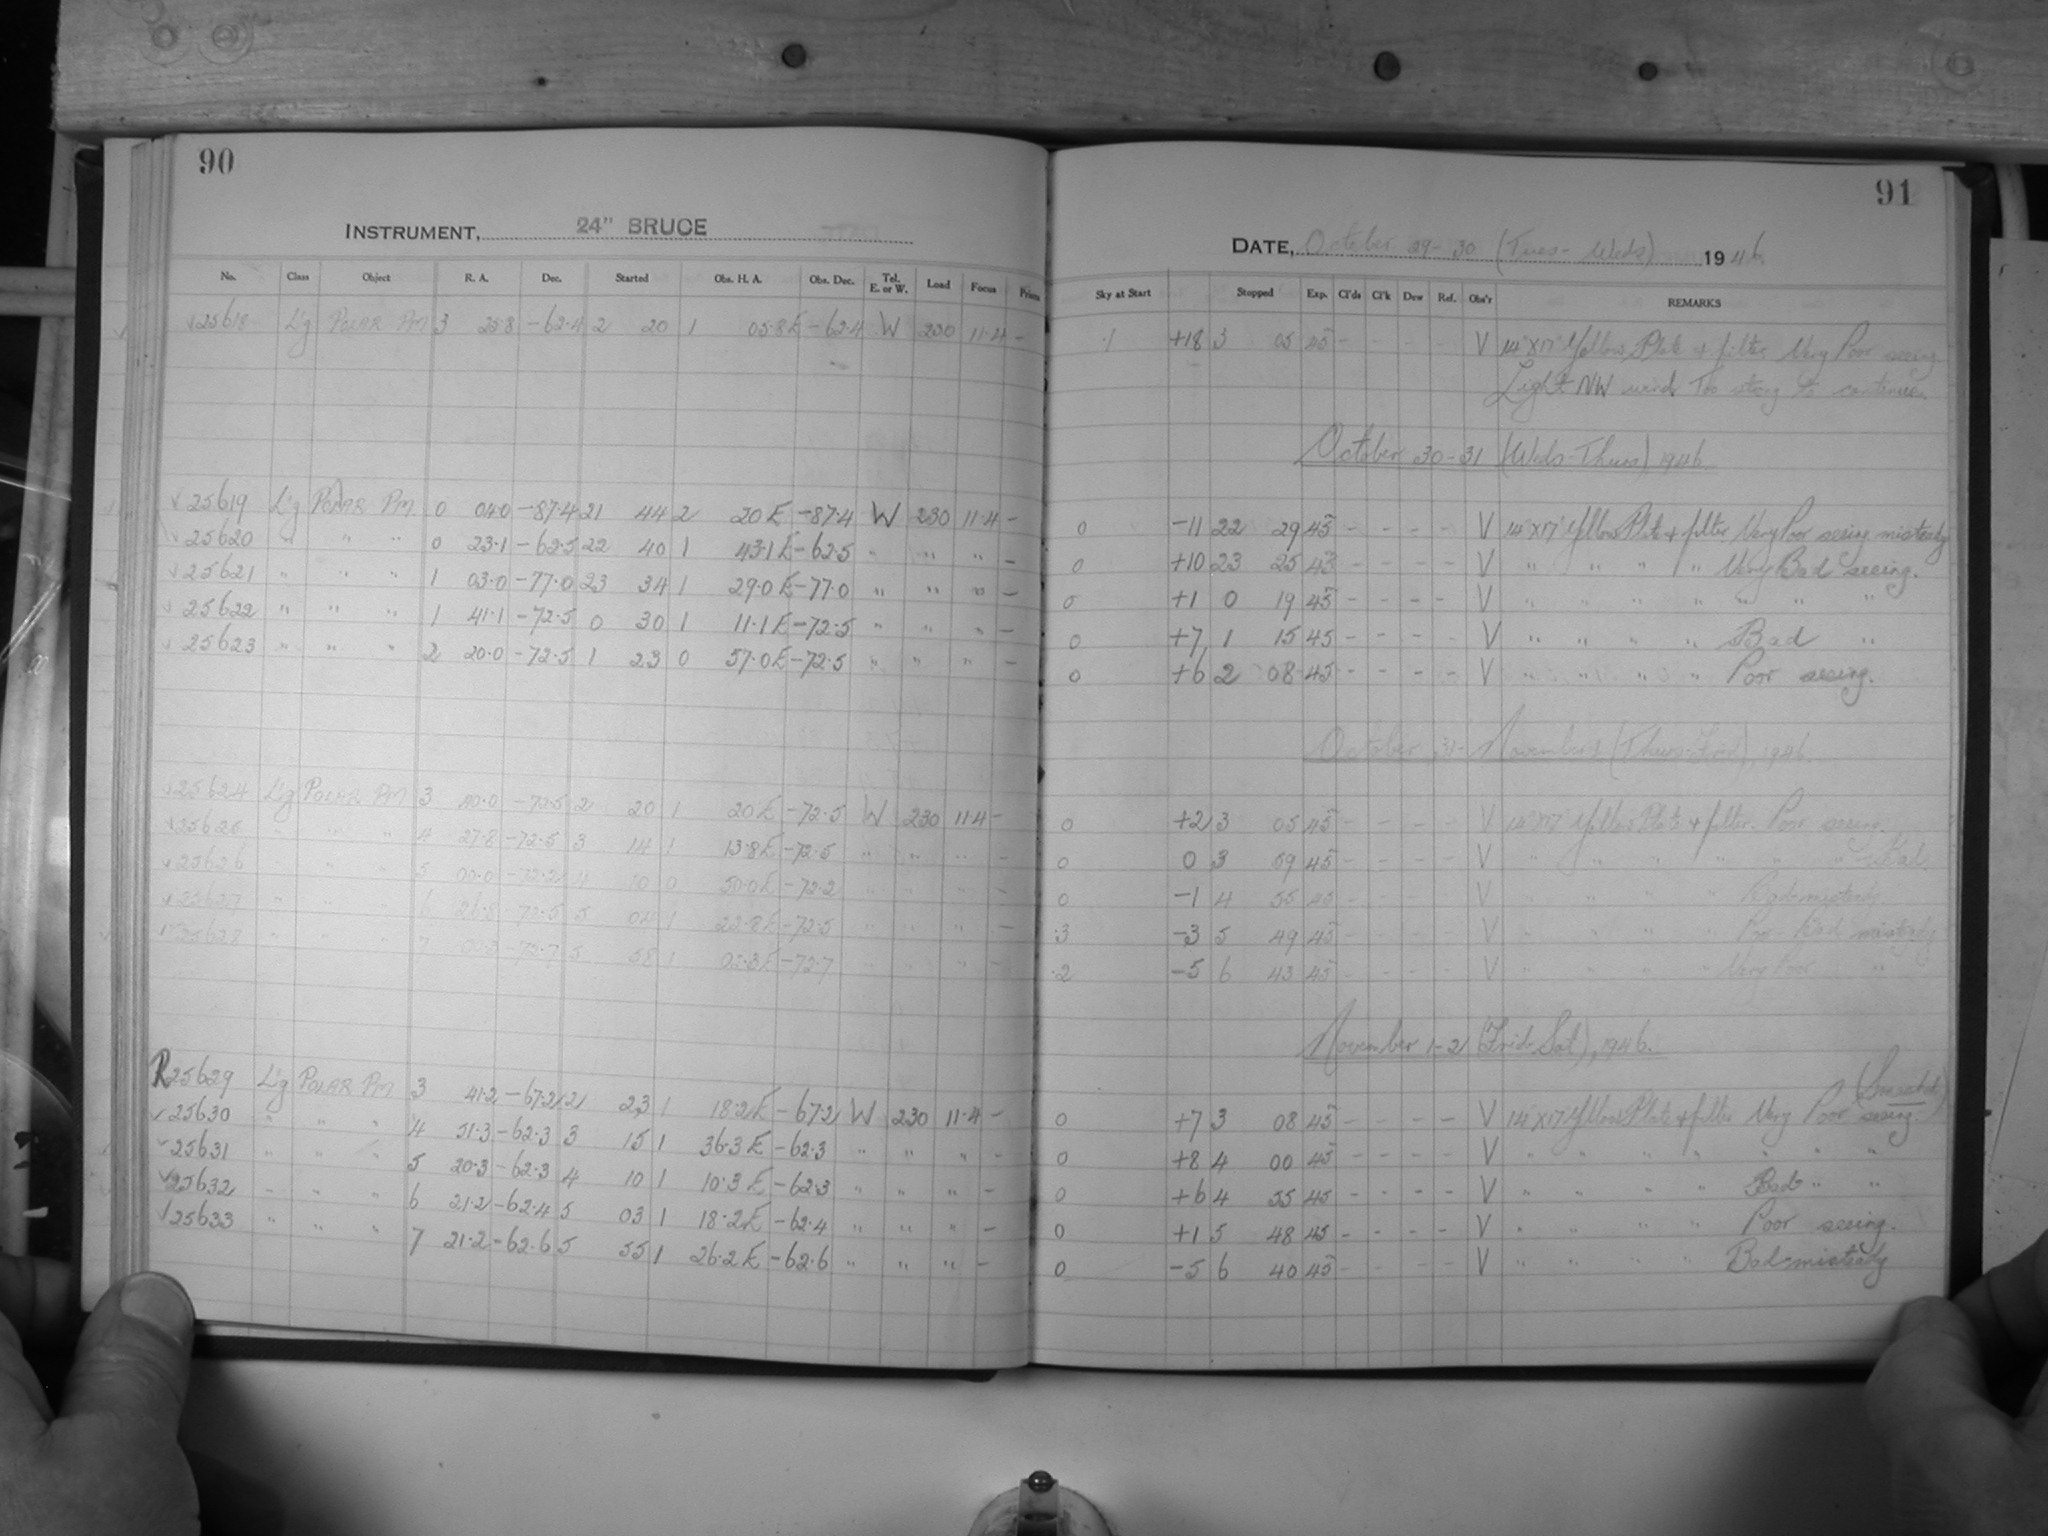 90
INSTRUMENT, 24" BRUCE
No. Class Object R. A. Dec. Started Obs. H. A. Obs. Dec. Tel. E. or W. Load Focus Prism
√25618 L'g POLAR PM 3 25.8 -62.4 2 20 1 05.8E -62.4 W 230 11.4 -
√25619 L'g POLAR PM 0 04.0 -87.4 21 44 2 20E -87.4 W 230 11.4 -
√25620 " " " 0 23.1 -62.5 22 40 1 43.1E -62.5 " " " -
√25621 " " " 1 03.0 -77.0 23 34 1 29.0E -77.0 " " " -
√25622 " " " 1 41.1 -72.5 0 30 1 11.1E -72.5 " " " -
√25623 " " " 2 20.0 -72.5 1 23 0 57.0E -72.5 " " " -
√25624 L'g POLAR PM 3 -72.5 2 20 1 20E -72.5 W 230 11.4 -
√25625 " " " 4 27.8 -72.5 3 14 1 13.8E -72.5 " " " -
√25626 " " " 5 00.0 -72.2 4 10 0 50.0E -72.2 " " " -
√25627 " " " 6 26.8 -72.5 5 04 1 22.8E -72.5 " " " -
√25628 " " " 7 -72.7 5 58 1 02.3E -72.7 " " " -
R25629 L'g POLAR PM 3 41.2 -67.2 2 23 1 18.2E -67.2 W 230 11.4 -
√25630 " " " 4 51.3 -62.3 3 15 1 36.3E -62.3 " " " -
√25631 " " " 5 20.3 -62.3 4 10 1 10.3E -62.3 " " " -
√25632 " " " 6 21.2 -62.4 5 03 1 18.2E -62.4 " " " -
√25633 " " " 7 21.2 -62.6 5 55 1 26.2E -62.6 " " " -
91
DATE, October 29-30 (Tues-Weds) 1946
Sky at Start Stopped Exp. Cl'ds Cl'k Dew Ref. Obs'r REMARKS
.1 +18 3 05 45 - - - - V 14"X17" Yellow Plate & filter Very Poor seeing
Light NW wind Too strong to continue.
October 30-31 (Weds-Thurs), 1946.
0 -11 22 29 45 - - - - V 14"X17" Yellow Plate & filter Very Poor seeing misteady
0 +10 23 25 45 - - - - V " " " " Very Bad seeing.
0 +1 0 19 45 - - - - V " " " " " " "
0 +7 1 15 45 - - - - V " " " " Bad "
0 +6 2 08 45 - - - - V " " " " Poor seeing.
October 31-November 1 (Thurs-Frid), 1946.
0 +2 3 05 45 - - - - V 14"X17" Yellow Plate & filter. Poor seeing.
0 0 3 59 45 - - - - V " " " " " " -Bad.
0 -1 4 55 45 - - - - V " " " " Bad-misteady
.3 -3 5 49 45 - - - - V " " " " Poor-Bad misteady
.2 -5 6 43 45 - - - - V " " " " Very Poor "
November 1-2 (Frid-Sat), 1946.
0 +7 3 08 45 - - - - V 14"X17" Yellow Plate & filter Very Poor seeing.
0 +8 4 00 45 - - - - V " " " " " " "
0 +6 4 55 45 - - - - V " " " " Bad " "
0 +1 5 48 45 - - - - V " " " " Poor seeing.
0 -5 6 40 45 - - - - V " " " " Bad-misteady